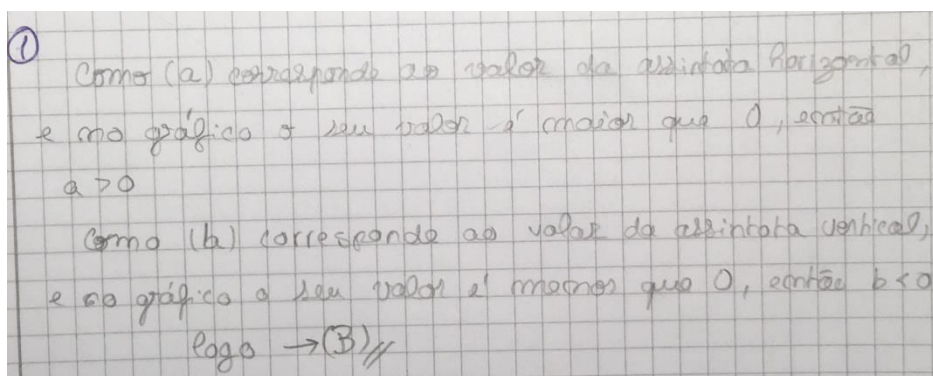 ①
Como (a) corresponde ao valor da assintota horizontal,
e no gráfico o seu valor é maior que 0, então
a > 0
Como (b) corresponde ao valor da assintota vertical,
e no gráfico o seu valor é menor que 0, então b < 0
logo → (B)//